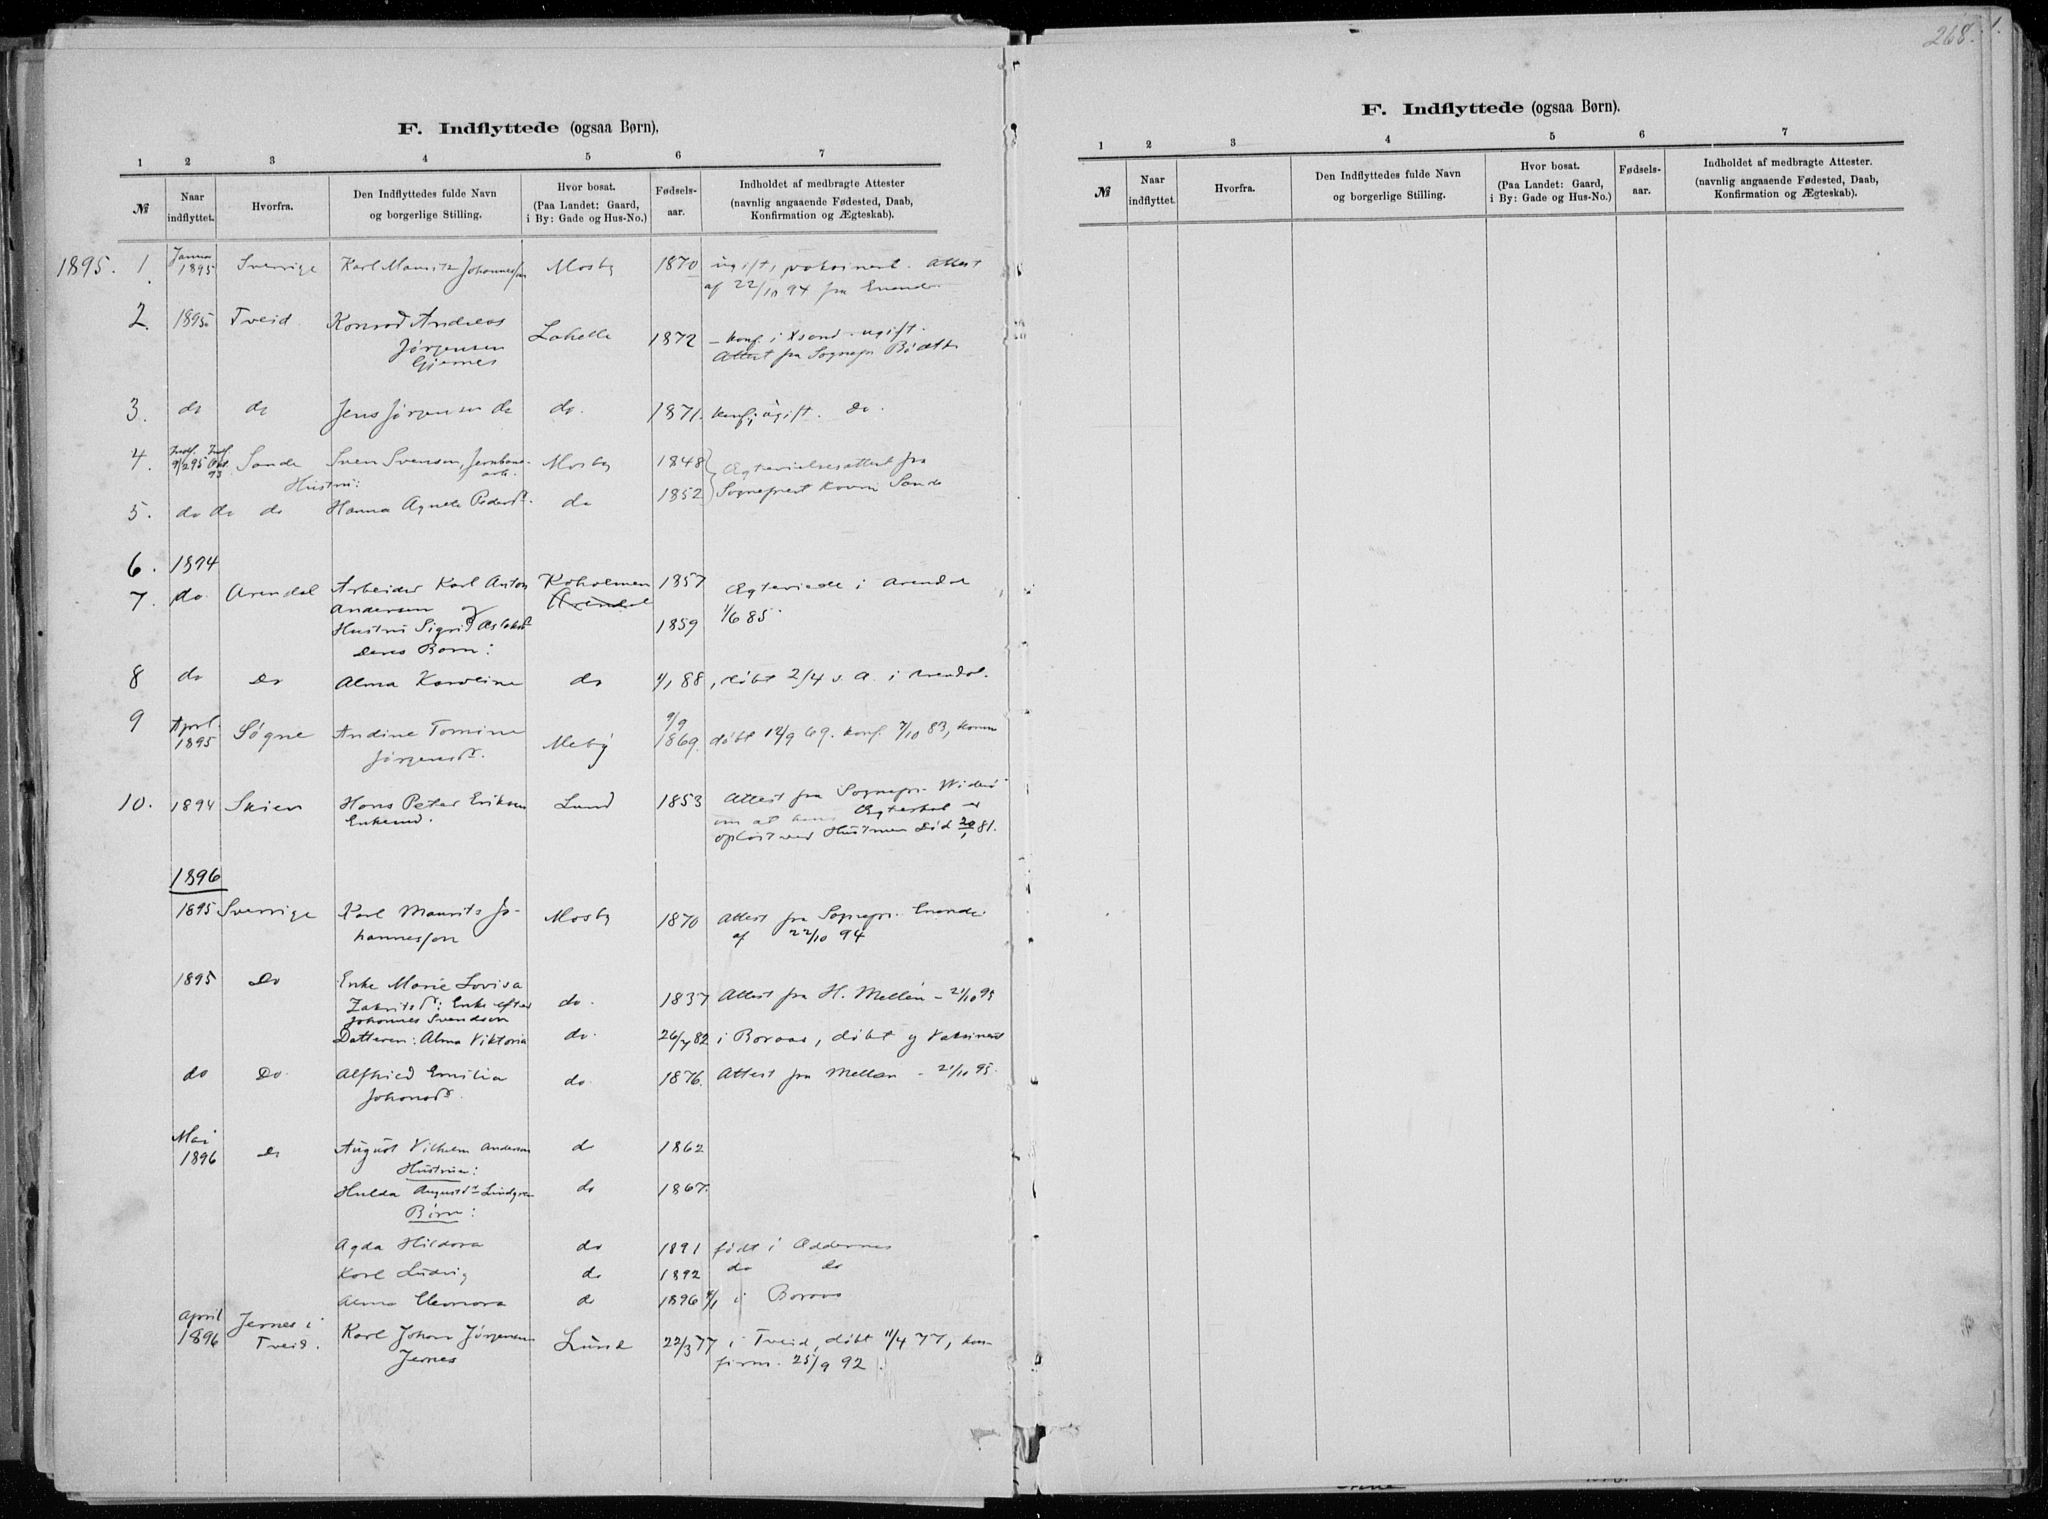 268.
F. Indflyttede (ogsaa Børn).
1 2 3 4 5 6 7
№
Naar indflyttet.
Hvorfra.
Den Indflyttedes fulde Navn og borgerlige Stilling.
Hvor bosat. (Paa Landet: Gaard, i By: Gade og Hus-No.)
Fødsels-aar.
Indholdet af medbragte Attester (navnlig angaaende Fødested, Daab, Konfirmation og Ægteskab).
1895. 1. 1895 Sverrige Karl Mauritz Johannesson Mosby 1870 ugift, vaksinert. Attest
af 22/10 94 fra
2. 1895 Tveid Konrad Andreas
Jørgensen
Gjernes
Lahelle 1872 – konf. i Xsand. ugift.
Attest fra Sognepr.
3. do do Jens Jørgensen do do. 1871. konf; ugift. Do.
4. Sande Sven Svensen, Jernbane- Mosby 1848
arb.
Ægtevielsesattest fra
Hustru:
5. do do do Hanna Agnete Pedersd. do 1852 Sogneprest Sande
6. 1894
7. do. Arendal Arbeider Karl Anton Koholmen 1857 Ægteviede i Arendal
Andersen og Arendal 1/6 85.
Hustru Sigrid Aslaksd 1859
Deres Børn:
8 do Do Alma Karoline do 1/1 88, døbt 2/4 s. A. i Arendal.
9 April 1895 Søgne Andine Tomine
Jørgensd.
Mebø 9/9 1869. døbt 12/9 69. konf. 7/10 83,
10. 1894 Skien Hans Peter Eriksen Lund 1853 Attest fra Sognepr.
Enkemd. om at hans Ægteskab er
opløst ved Hustruens Død 20/1 81.
1896
1895 Sverrige Karl Maurits Jo- Mosby 1870 Attest fra Sognepr.
hannesson af 22/10 94
1895 Do Enke Marie Lovisa
Zakrisd: Enke efter do. 1837 Attest fra H. Mellén – 21/10 95
Johannes Svendsen
Datteren: Alma Viktoria do. 26/7 82 i Boraas, døbt og Vaksinert
do Do Alfhild Emilia do 1876. Attest fra Mellén – 21/10 95.
Johansd.
Mai
1896 do August Vilhelm Andersen do 1862
Hustruen:
Hulda Augustd. Lindgren do 1867.
Børn:
Agda Hildora do 1891 født i Oddernes
Karl Ludvig do 1892 do do
Alma Eleonora do 1896 i Boraas
April
1896 Jernes i
Tveid.
Karl Johan Jørgensen Lund 22/3 77 i Tveid, døbt 11/4 77, kon-
Jernes firm. 25/9 92.
F. Indflyttede (ogsaa Børn).
1 2 3 4 5 6 7
№
Naar indflyttet.
Hvorfra.
Den Indflyttedes fulde Navn og borgerlige Stilling.
Hvor bosat. (Paa Landet: Gaard, i By: Gade og Hus-No.)
Fødsels-aar.
Indholdet af medbragte Attester. (navnlig angaaende Fødested, Daab, Konfirmation og Ægteskab).